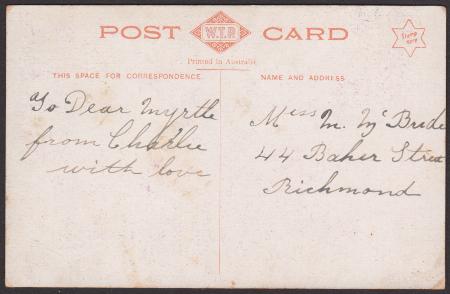 POST W.T.P. CARD
Stamp here
Printed in Australia
THIS SPACE FOR CORRESPONDENCE.
NAME AND ADDRESS
To Dear Myrtle
from Charlie
with love
Miss M. McBride
44 Baker Street
Richmond